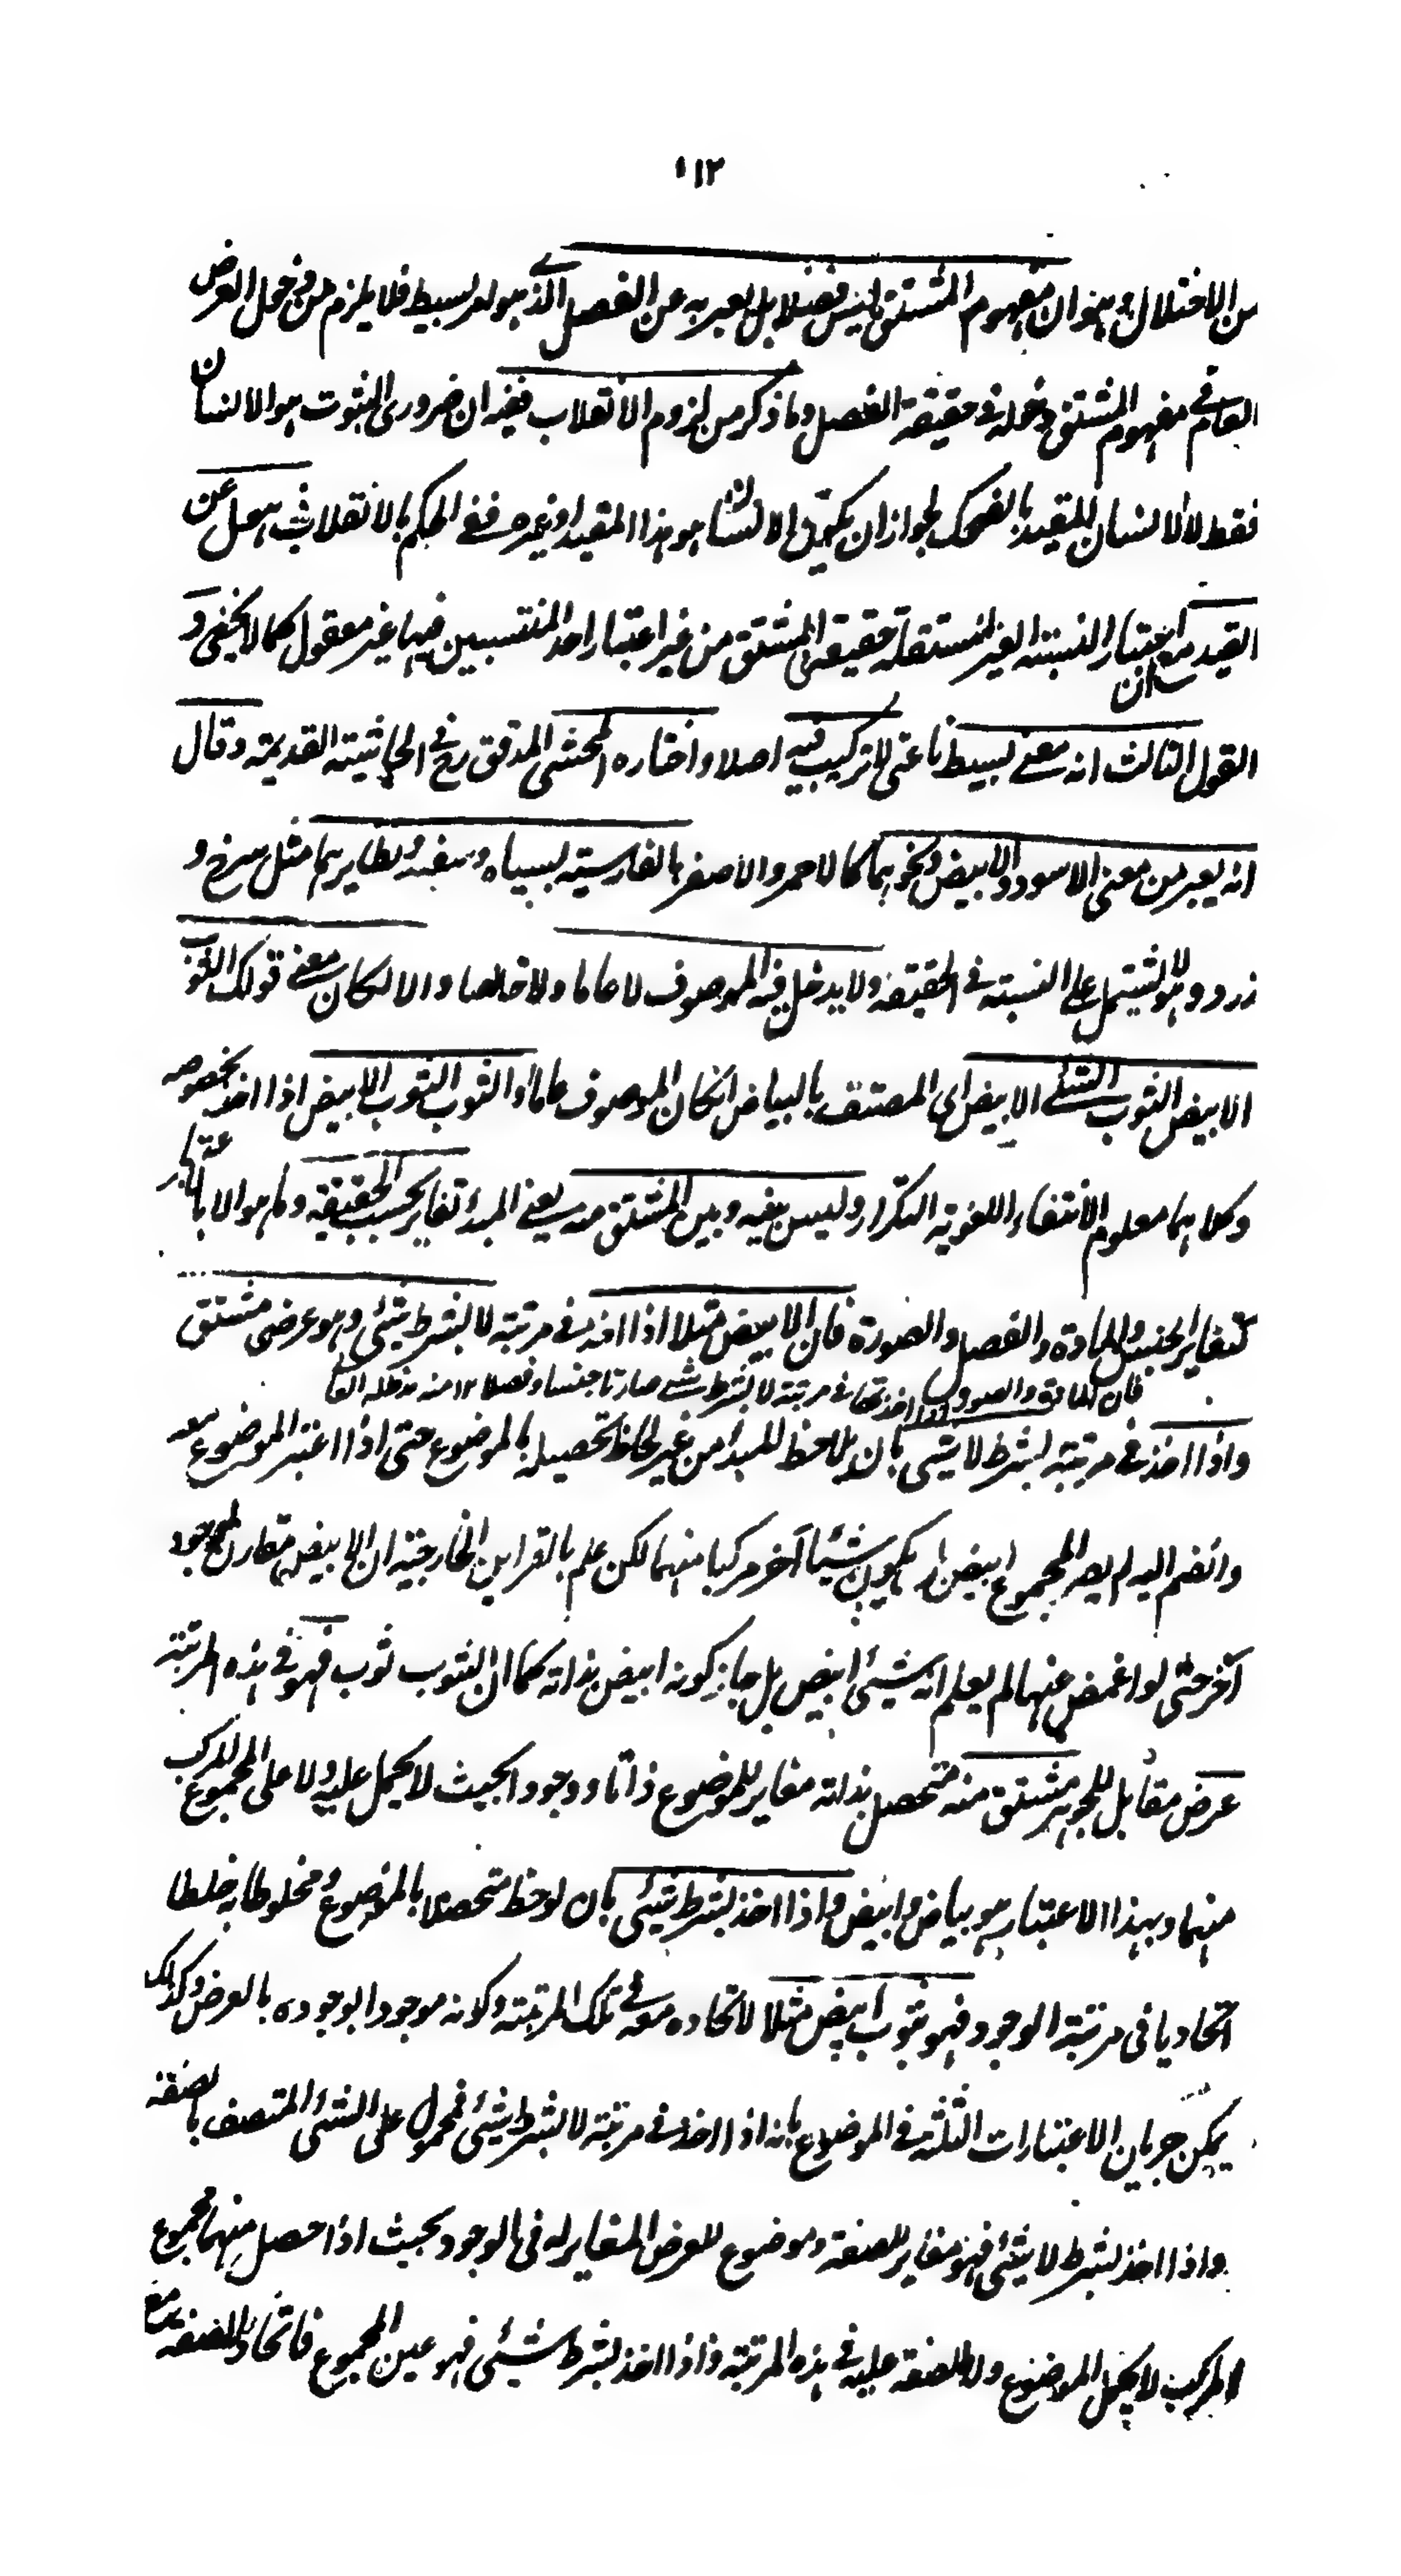 ١١٢
من الاختلال وهو ان مفهوم المشتق ليس فصلا بل يعبر به عن الفصل الذي هو امر بسيط فلا يلزم من دخول العرض
العام في مفهوم المشتق دخله في حقيقة الفصل وما ذكر من لزوم الانقلاب ففيه ان ضروري الثبوت هو الانسان
فقط لا الانسان المقيد بالضحك لجواز ان يكون الانسان هو هذا المقيد او غيره ففي الحكم بالانقلاب ذهول عن
القيد مع ان اعتبار النسبة الغير المستقلة حقيقة في المشتق من غير اعتبار احد المنتسبين فيها غير معقول كما لا يخفى و
القول الثالث انه معنى بسيط ناعتي لا تركيب فيه اصلا واختاره المحشي المدقق رح في الحاشية القديمة وقال
انه يعبر من معنى الاسود والابيض ونحوهما كالاحمر والاصفر بالفارسية بسياه وسفيد ونظايرهما مثل سرخ و
زرد وهو لا يشتمل على النسبة في الحقيقة ولا يدخل فيه الموصوف لا عاما ولا خاصا والا لكان معنى قولك الثوب
الابيض الثوب الشئ الابيض اى المتصف بالبياض انكان الموصوف عاما او الثوب الثوب الابيض اذا اخذ بخصوصه
وكلاهما معلوم الانتفاء اللغوية التكرار وليس بينه وبين المشتق منه يعني المبدأ تغاير بحسب الحقيقة وما هو الا بالاعتبار
كتغاير الجنس والمادة والفصل والصورة فان الابيض مثلا اذا اخذ في مرتبة لا بشرط شئ وهو عرضي مشتق
فان المادة والصورة اذا اخذتا في مرتبة لا بشرط شئ صارتا جنسا وفصلا ١٢ منه مدظله العالي
واذا اخذ في مرتبة بشرط لا شئ بان يلاحظ المبدأ من غير لحاظ تحصيله بالموضوع حتى اذا اعتبر الموضوع معه
وانضم اليه لم يصر المجموع ابيض بل يكون شيئا آخر مركبا منهما لكن علم بالقراين الخارجية ان الابيض مقارن لموجود
آخر حتى لو اغمض عنها لم يعلم انه شئ ابيض بل جاز كونه ابيض بذاته كما ان الثوب ثوب فهو في هذه المرتبة
عرض مقابل للجوهر مشتق منه متحصل بذاته مغاير للموضوع ذاتا ووجودا بحيث لا يحمل عليه ولا على المجموع المركب
منهما وبهذا الاعتبار هو بياض وابيض واذا اخذ بشرط شئ بان لوحظ متحصلا بالموضوع ومخلوطا به خلطا
اتحاديا في مرتبة الوجود فهو ثوب ابيض مثلا لاتحاده معه في تلك المرتبة وكونه موجودا بوجوده بالعرض وكذلك
يمكن جريان الاعتبارات الثلثة في الموضوع بانه اذا اخذ في مرتبة لا بشرط شئ فمحمول على الشئ المتصف بالصفة
واذا اخذ بشرط لا شئ فهو مغاير للصفة وموضوع للعرض المغاير له في الوجود بحيث اذا حصل منهما مجموع
المركب لا يحمل الموضوع ولا الصفة عليه في هذه المرتبة واذا اخذ بشرط شئ فهو عين المجموع فاتحاد الصفة مع